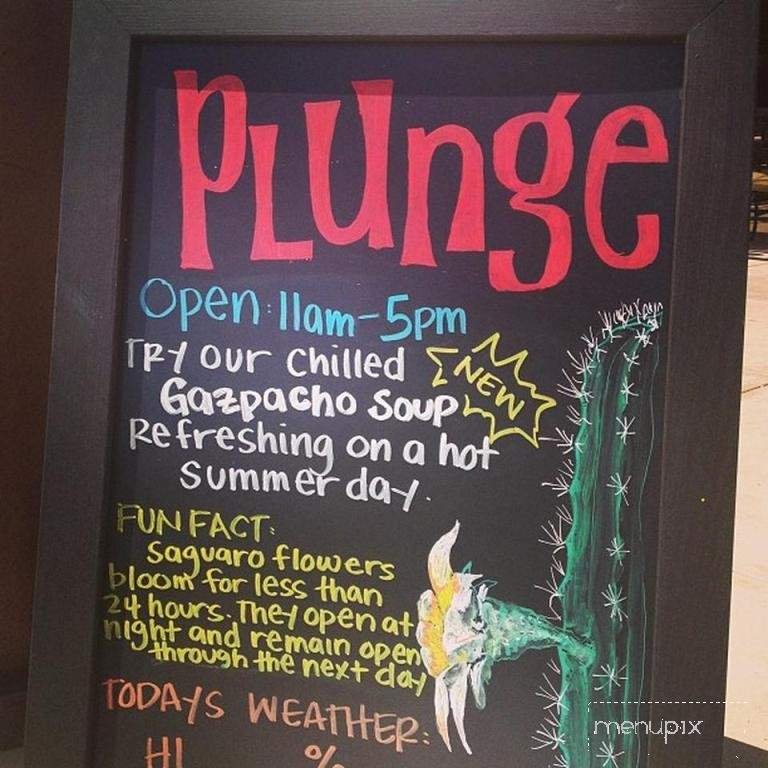 PLUnge
Open: 11am-5pm
TRY our chilled
NEW
Gazpacho Soup
Refreshing on a hot
summer day.
FUN FACT:
Saguaro flowers
bloom for less than
24 hours. They open at
night and remain open
through the next day
TODAYS WEATHER:
HI %
menupix